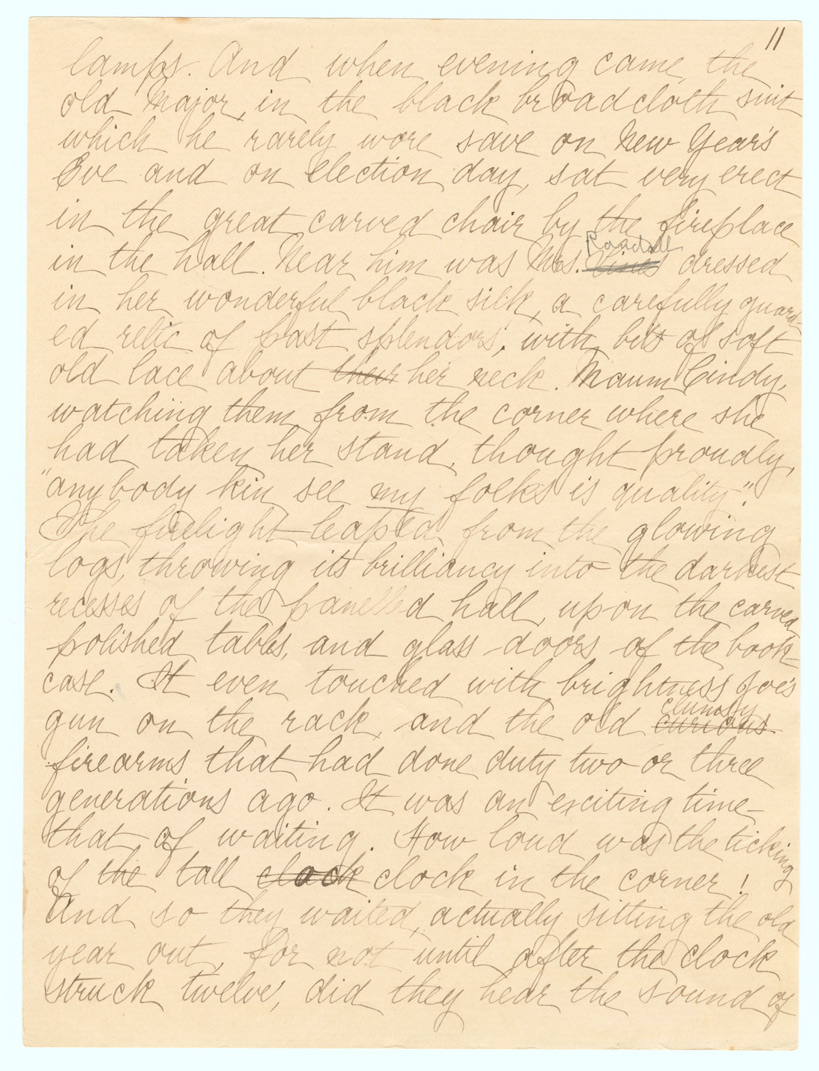 11
lamps. And when evening came, the
old Major, in the black broadcloth suit
which he rarely wore save on New Year's
Eve and on election day, sat very erect
in the great carved chair by the fireplace
in the hall. Near him was Mrs. Randall dressed
in her wonderful black silk, a carefully guard-
ed relic of past splendors, with bits of soft
old lace about their her neck. Maum Cindy,
watching them from the corner where she
had taken her stand, thought proudly,
"anybody kin see my folks is quality".
The firelight leaped from the glowing
logs, throwing its brilliancy into the darkest
recesses of the panelled hall, upon the carved
polished table, and glass doors of the book-
case. It even touched with brightness Joe's
gun on the rack, and the old curious clumsy
firearms that had done duty two or three
generations ago. It was an exciting time—
that of waiting. How loud was the ticking
of the tall clock clock in the corner!
And so they waited, actually sitting the old
year out, for not until after the clock
struck twelve, did they hear the sound of